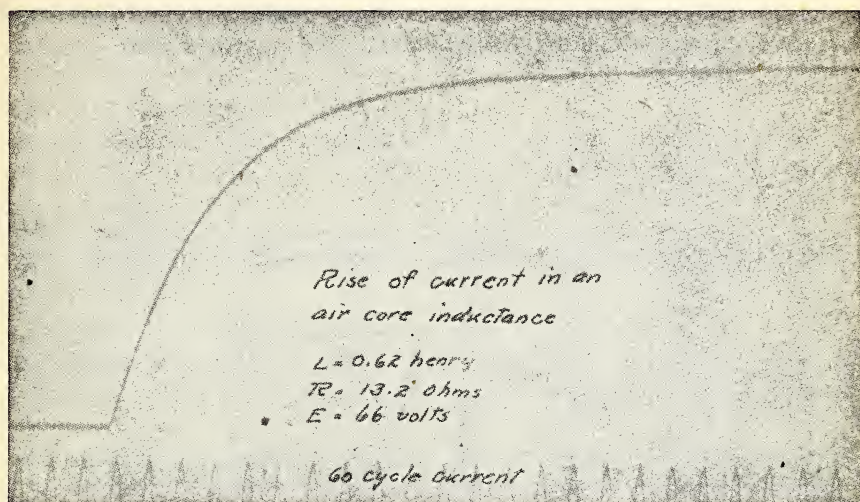 Rise of current in an
air core inductance
L = 0.62 henry
R = 13.2 ohms
E = 66 volts
60 cycle current